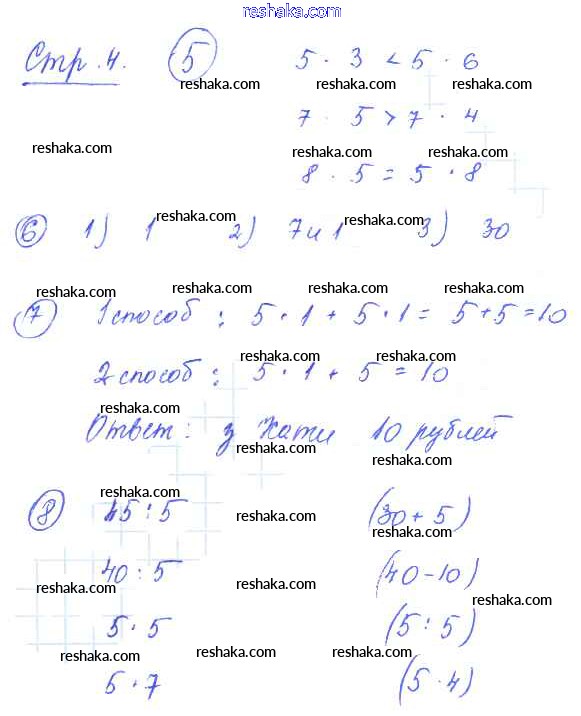 reshaka.com
Стр. 4. 5 5 · 3 < 5 · 6
reshaka.com reshaka.com reshaka.com
7 · 5 > 7 · 4
reshaka.com reshaka.com reshaka.com
8 · 5 = 5 · 8
reshaka.com reshaka.com
6 1) 1 2) 7 и 1 3) 30
reshaka.com reshaka.com reshaka.com reshaka.com
7 1 способ : 5 · 1 + 5 · 1 = 5 + 5 = 10
reshaka.com reshaka.com
2 способ : 5 · 1 + 5 = 10
reshaka.com
Ответ : у Кати 10 рублей
reshaka.com reshaka.com
reshaka.com
8 45 : 5 (30 + 5)
reshaka.com reshaka.com
40 : 5 (40 - 10)
reshaka.com reshaka.com reshaka.com
5 · 5 (5 : 5)
reshaka.com reshaka.com reshaka.com
5 · 7 (5 · 4)